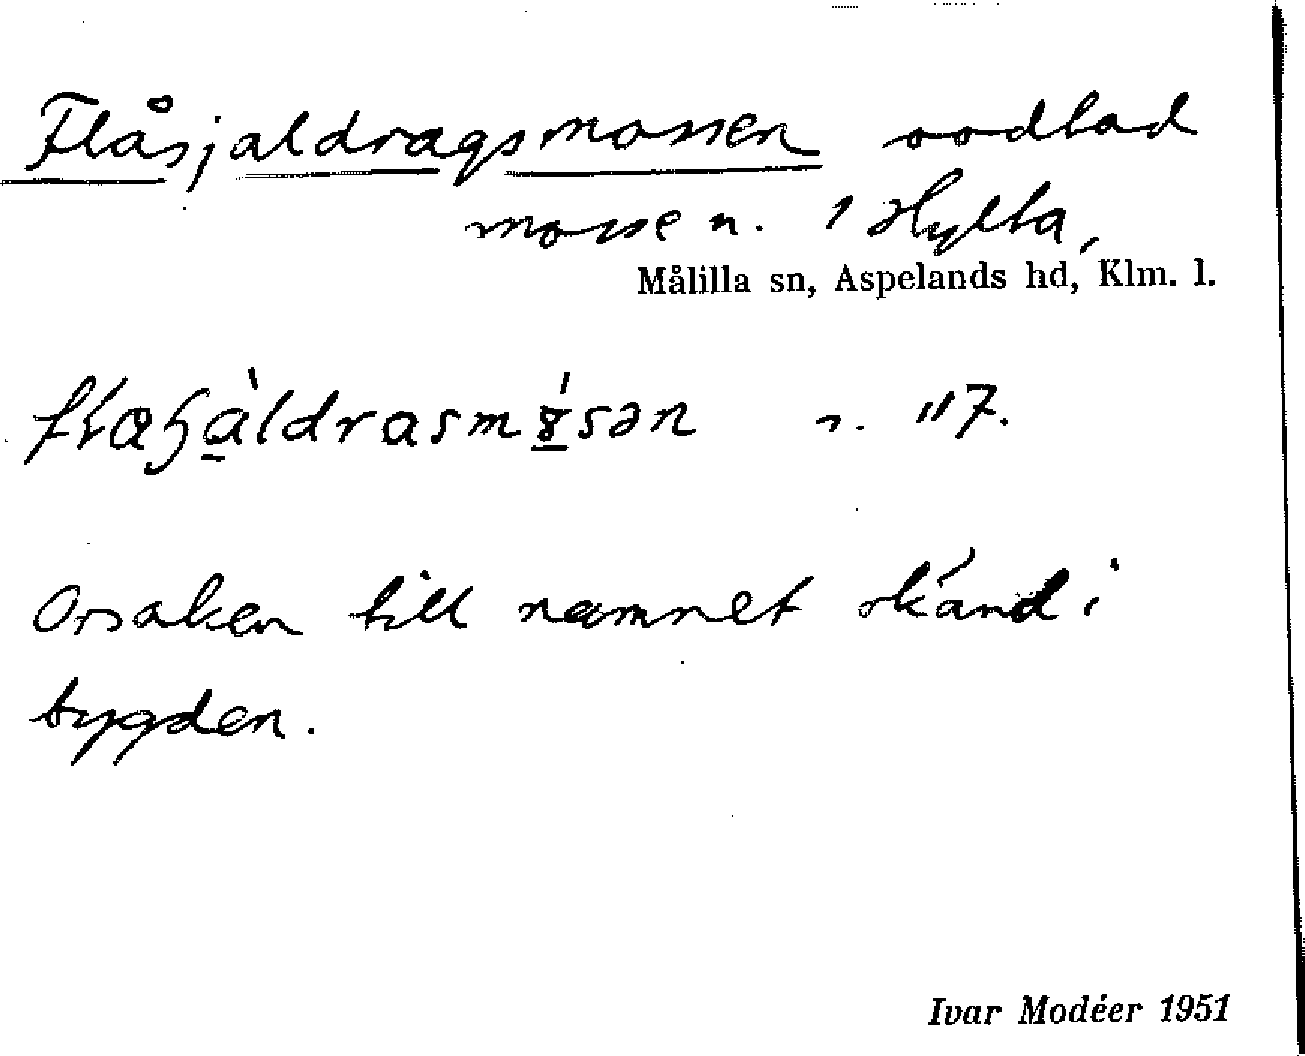 Flåsjaldragsmossen oodlad
mosse n. i Hylta,
Målilla sn, Aspelands hd, Klm. l.
n. "7.
Orsaken till namnet okänd i
bygden.
Ivar Modéer 1951